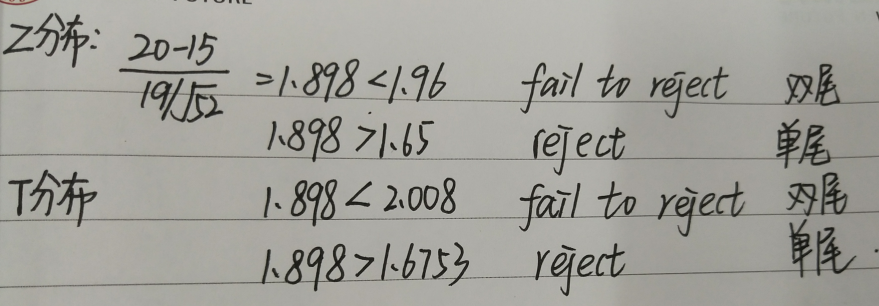 Z分布: 20-15 / 19/√52 = 1.898 < 1.96 fail to reject 双尾
1.898 > 1.65 reject 单尾
T分布 1.898 < 2.008 fail to reject 双尾
1.898 > 1.6753 reject 单尾.